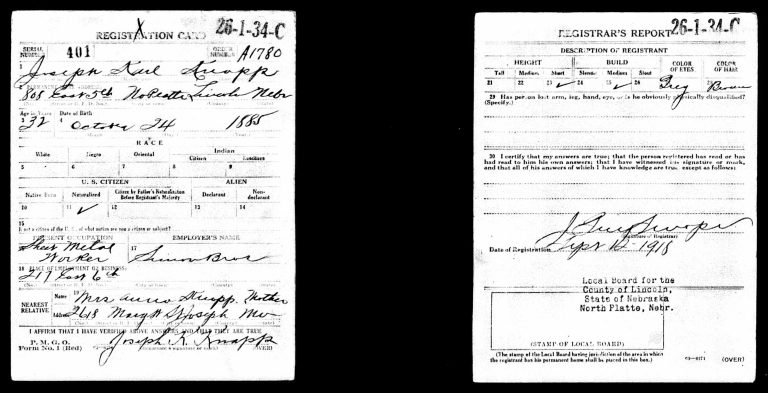 REGISTRATION CARD 26-1-34-C
SERIAL NUMBER 401 ORDER NUMBER A1780
1 Joseph Karl Knapp
808 East 5th No Platte Lincoln Nebr
Age in Years Date of Birth
32 October 24 1885
RACE
White Negro Oriental Indian
Citizen Noncitizen
5 6 7 8 9
U. S. CITIZEN ALIEN
Native Born Naturalized Citizen by Father's Naturalization Before Registrant's Majority Declarant Non-declarant
10 11 ✓ 12 13 14
15
If not a citizen of the U. S., of what nation are you a citizen or subject?
PRESENT OCCUPATION EMPLOYER'S NAME
Sheet Metal Worker 17 Simon Bros
18 PLACE OF EMPLOYMENT OR BUSINESS:
217 East 6th
NEAREST RELATIVE Name 19 Mrs Anna Knapp, Mother
Address 2618 Mary St St Joseph Mo
I AFFIRM THAT I HAVE VERIFIED ABOVE ANSWERS AND THAT THEY ARE TRUE
P. M. G. O.
Form No. 1 (Red) Joseph K. Knapp (OVER)
REGISTRAR'S REPORT 26-1-34-C
DESCRIPTION OF REGISTRANT
HEIGHT BUILD COLOR OF EYES COLOR OF HAIR
Tall Medium Short Slender Medium Stout
21 22 23 ✓ 24 25 ✓ 26 27 Grey 28 Brown
29 Has person lost arm, leg, hand, eye, or is he obviously physically disqualified?
(Specify.)
30 I certify that my answers are true; that the person registered has read or has
had read to him his own answers; that I have witnessed his signature or mark,
and that all of his answers of which I have knowledge are true, except as follows:
(Signature of Registrar)
Date of Registration Sept 12-1918
Local Board for the
County of Lincoln,
State of Nebraska
North Platte, Nebr.
(STAMP OF LOCAL BOARD)
(The stamp of the Local Board having jurisdiction of the area in which
the registrant has his permanent home shall be placed in this box.)
(OVER)